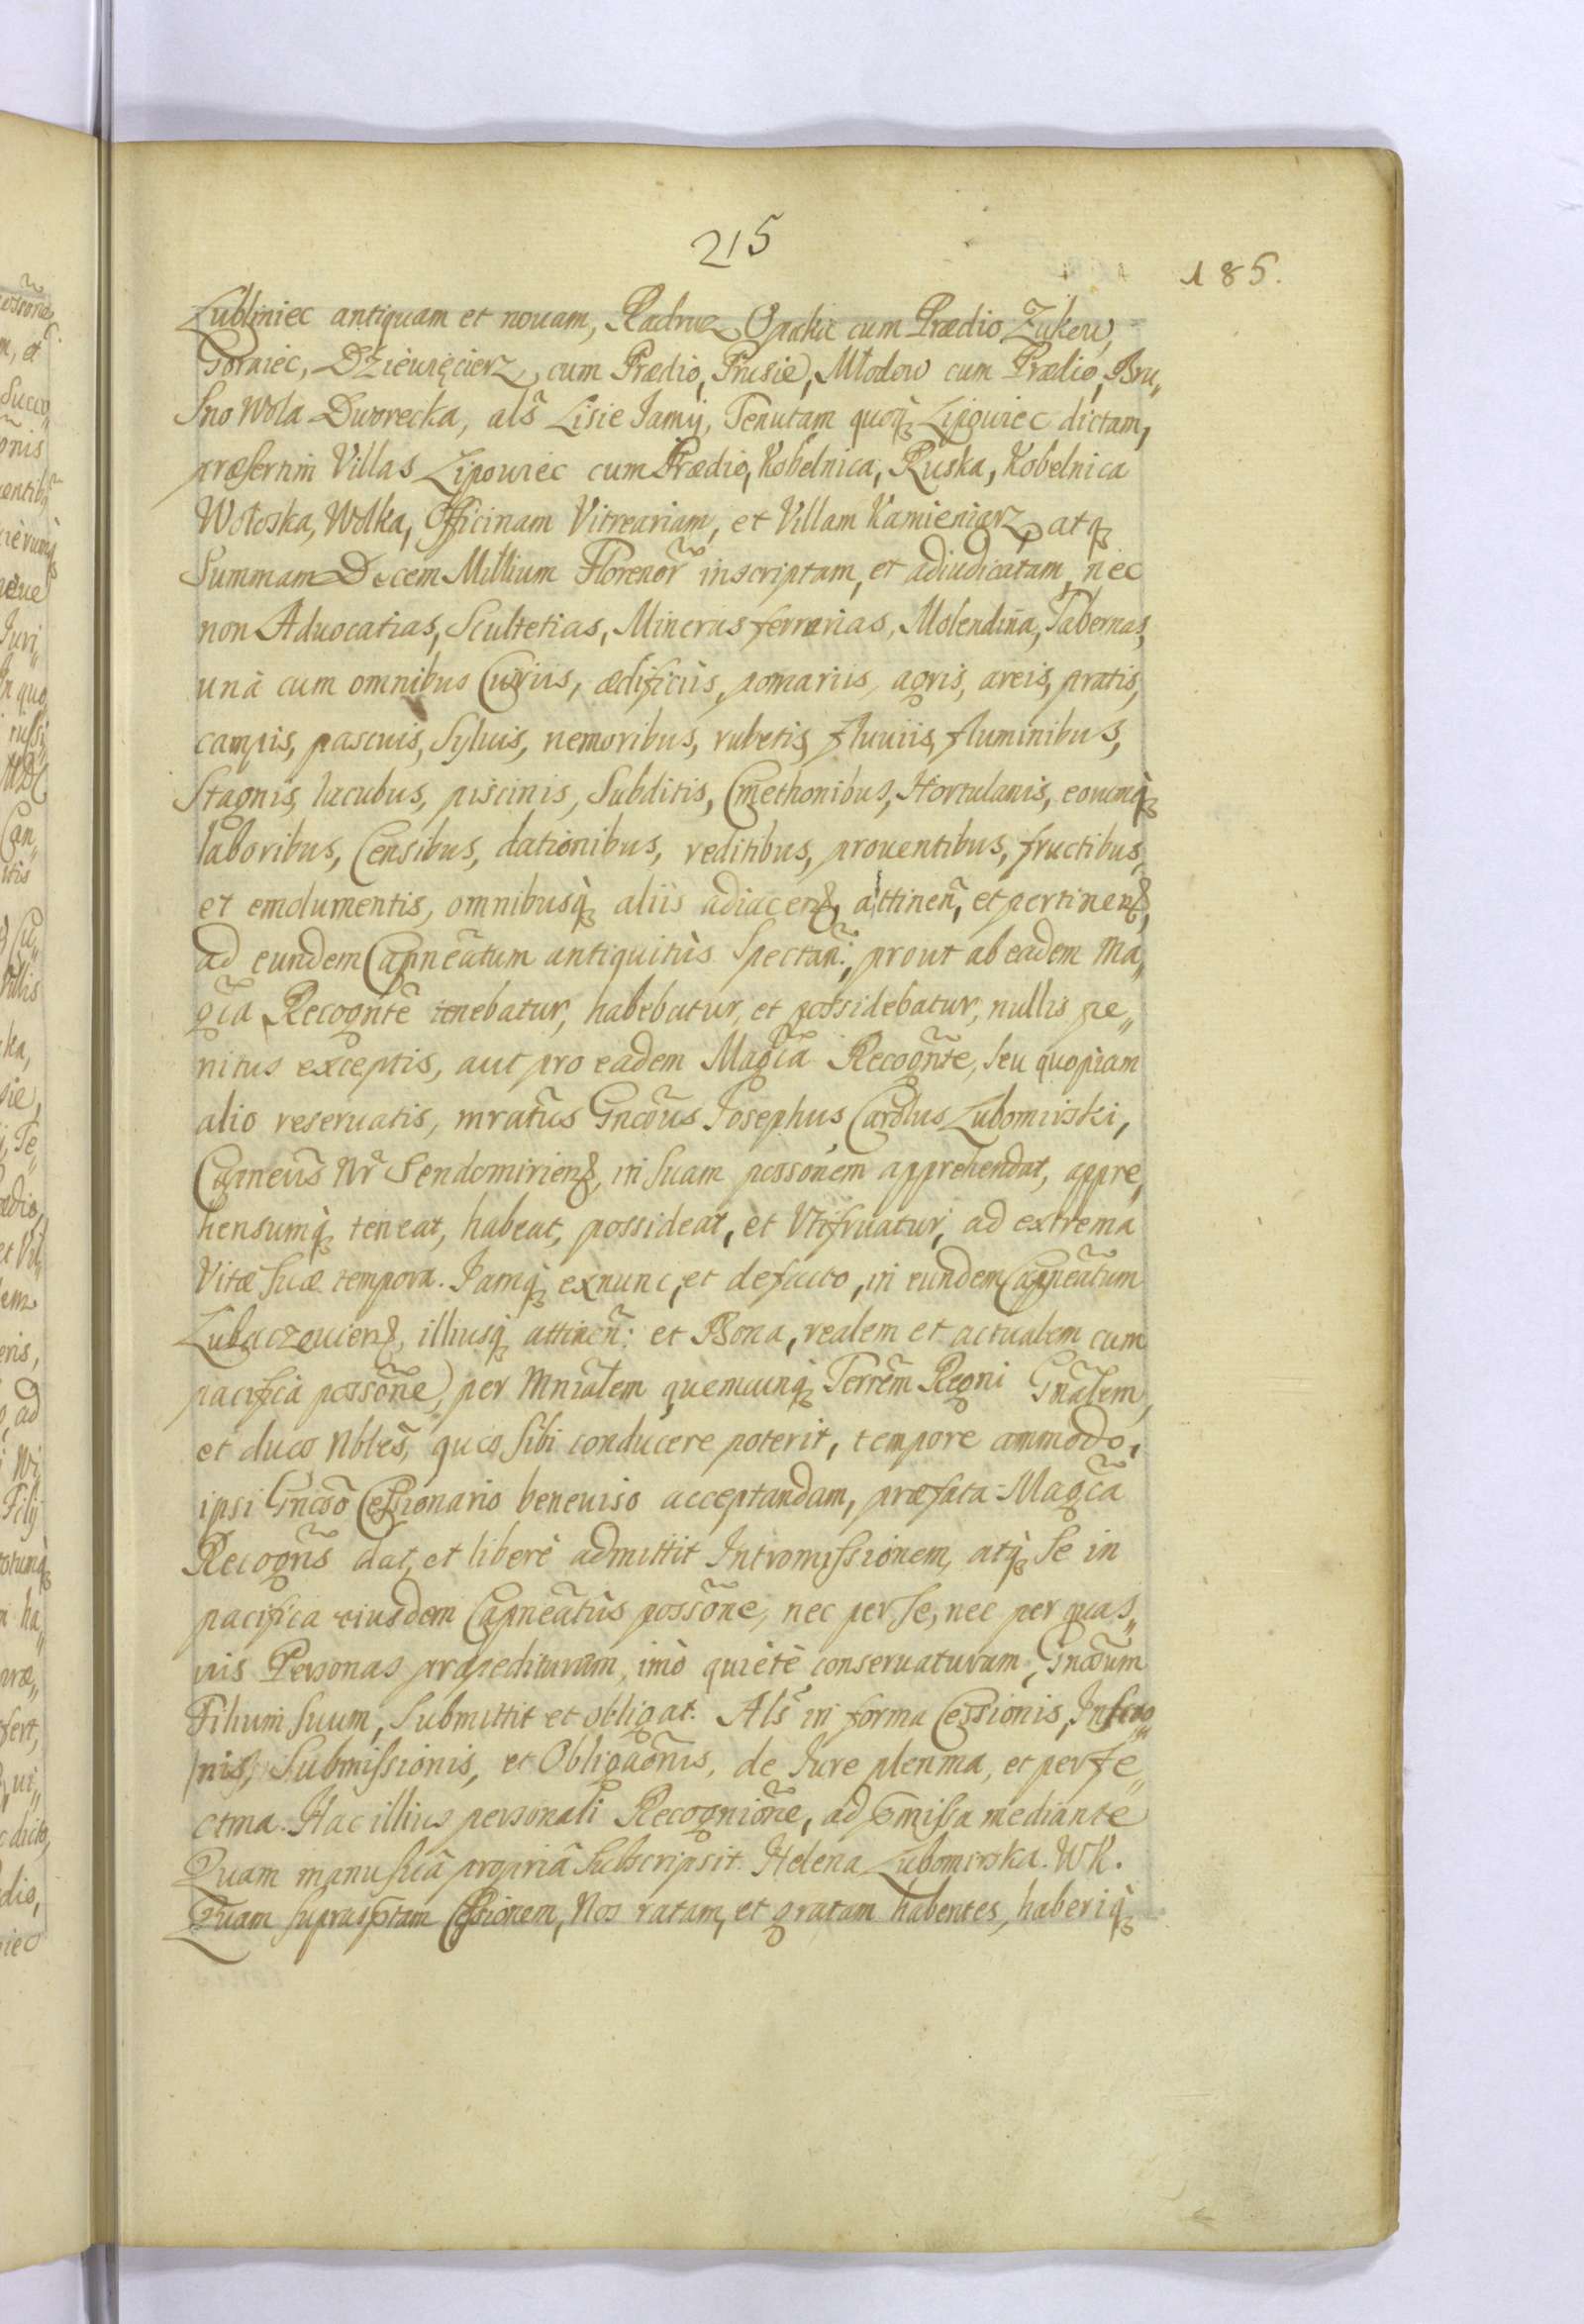 215
185.
Lubliniec antiquam et nouam, Radruz Opaka cum Prædio Zukow,
Goraiec, Dziewięcierz, cum Prædio, Prusie, Młodow cum Prædio, Bru„
sno Wola Dworecka, als̃ Lisie Jamÿ, Tenutam quoq́ꝫ Lipowiec dictam,
præsertim Villas Lipowiec cum Prædio, Kobelnica, Ruska, Kobelnica
Wołoska, Wolka, Officinam Vitreariam, et Villam Kamieniarz, atqꝫ
Summam Decem Millium Florenor̃ inscriptam, et adiudicatam, nec
non Aduocatias, Scultetias, Mineras ferrarias, Molendina, Tabernas,
unà cum omnibus Curiis, ædificiis, pomariis, agris, areis, pratis,
campis, pascuis, Syluis, nemoribus, rubetis, fluuiis, fluminibus,
Stagnis, lacubus, piscinis, Subditis, Cmethonibus, Hortulanis, eorumq́ꝫ
laboribus, Censibus, dationibus, reditibus, prouentibus, fructibus,
et emolumentis, omnibusq́ꝫ aliis adiacenꝭ, attineñ, et pertinenꝭ,
ad eundem Capneãtum antiquitùs Spectañ:, prout ab eadem Ma„
gc̃a Recogntẽ tenebatur, habebatur, et possidebatur, nullis pe„
nitus exceptis, aut pro eadem Magc̃a Recogñte, seu quopiam
alio reseruatis, mratũs Gnc̃oùs Josephus Carolus Lubomirski,
Capneũs Nr̃ Sendomirienꝭ, in Suam possonem apprehendat, appre„
hensumq́ꝫ teneat, habeat, possideat, et Vtifruatur, ad extrema
Vitæ suæ tempora. Jamq́ꝫ exnunc, et defacto, in eundem Capneãtum
Lubaczouienꝭ, illiusq́ꝫ attineñ: et Bona, realem et actualem cum
pacifica possõne) per Mnr̃alem quemcunq́ꝫ Terrẽm Regni Gnãlem,
et duos Nblẽs, quos sibi conducere poterit, tempore ammodo,
ipsi Gnc̃oso Cessionario beneuiso acceptandam, præfata Magc̃a
Recogñs dat, et liberè admittit Intromissionem, atq́ꝫ Se in
pacifica eiusdem Capneãtùs possõne, nec per Se, nec per quas„
uis Personas præpedituram, imò quietè conseruaturam, Gnc̃oum
Filium Suum, Submittit et obligat. Als̃ in forma Cessionis, Inscrõ„
nis, Submissionis, et Obligaõnis, de Jure plenma, et perfe„
ctma. Hac illius personali Recogniõne, ad p̃missa mediante
Quam manu suâ propriâ Subscripsit. Helena Lubomirska. WK.
Quam suprasptam Cessionem, Nos ratam, et gratam habentes, haberiq́ꝫ